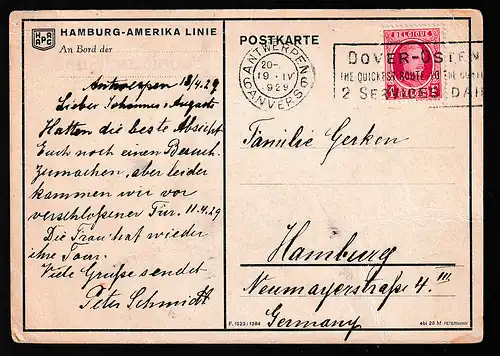 HAPAG
HAMBURG-AMERIKA LINIE
An Bord der
Antwerpen 18/4.29
Lieber Johannes u. August
Hatten die beste Absicht
Euch noch einen Besuch
zumachen, aber leider
kammen wir vor
verschloßener Tür. 11.4.29
Die Frau hat wieder
ihre Tour.
Viele Grüße sendet
Peter Schmidt
POSTKARTE
BELGIQUE
ANTWERPEN 6
20-
19 - IV
1929
ANVERS
DOVER-OSTEN
THE QUICKEST ROUTE TO THE CONT
2 SERVICES DAI
Familie Gerken
Hamburg
Neumayerstraße 4. III
Germany
F. 1023:1384
abi 28 hf PETERMANN